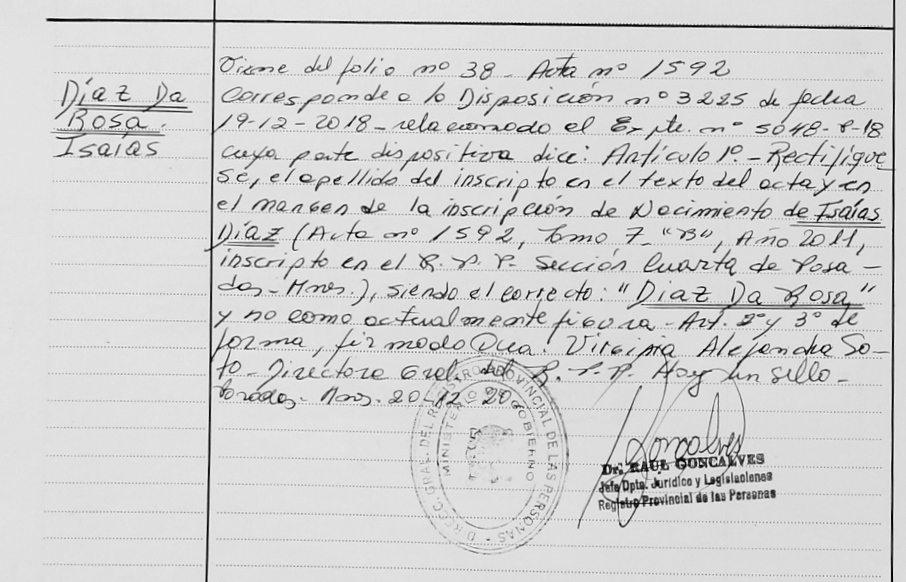 Díaz Da
Rosa.
Isaías
Viene del folio nº 38 - Acta nº 1592
Corresponde a la Disposición nº 3225 de fecha
19-12-2018 - relacionado al Expte. nº 5048-P-18
cuya parte dispositiva dice: Artículo 1º. - Rectifíque
se, el apellido del inscripto en el texto del acta y en
el margen de la inscripción de Nacimiento de Isaías
Díaz (Acta nº 1592, Tomo 7 "B", Año 2011,
inscripto en el R.P.P. Sección Cuarta de Posa -
das - Mnes.), siendo el correcto: "Diaz Da Rosa"
y no como actualmente figura - Art. 2º y 3º de
forma, firmado Dra. Virginia Alejandra So-
to - Directora Gral. del R.P.P. Hay un sello -
Posadas - Mnes. 20-12
DIREC. GRAL. DEL REGISTRO PROVINCIAL DE LAS PERSONAS
MINISTERIO GOBIERNO
Goncalves
Dr. RAUL GONCALVES
Jefe Dpto. Jurídico y Legislaciones
Registro Provincial de las Personas